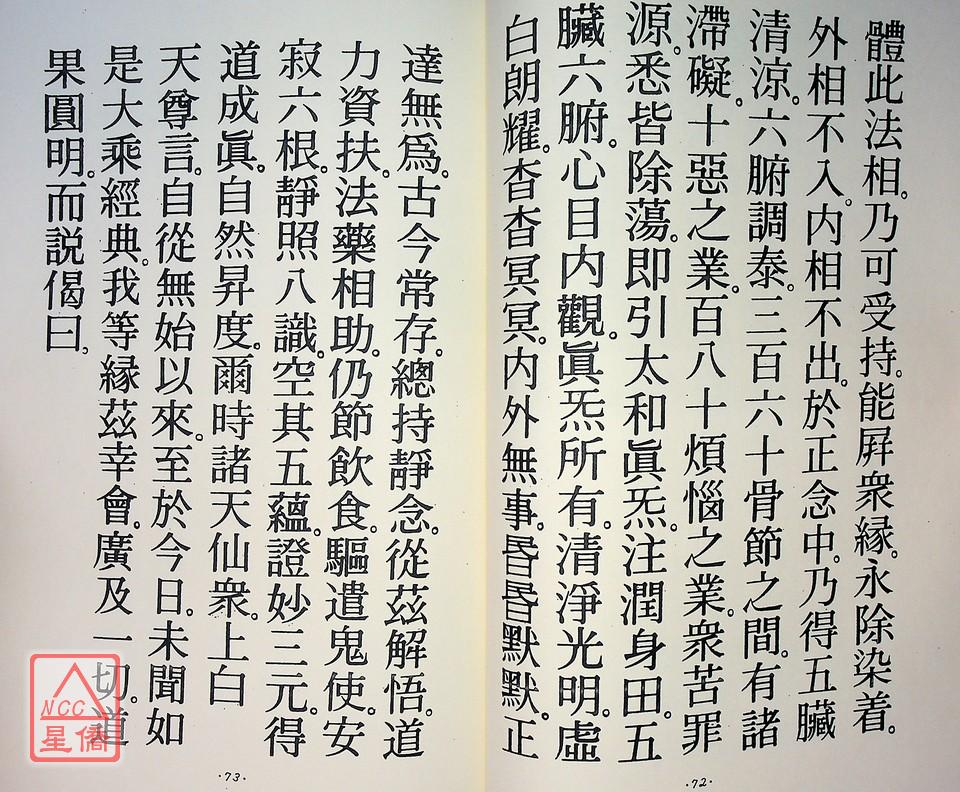 體此法相。乃可受持。能屛衆緣。永除染着。
外相不入。內相不出。於正念中。乃得五臟
清涼。六腑調泰。三百六十骨節之間。有諸
滯礙。十惡之業。百八十煩惱之業。衆苦罪
源。悉皆除蕩。卽引太和眞炁。注潤身田。五
臟六腑。心目內觀。眞炁所有。清淨光明。虛
白朗耀。杳杳冥冥。內外無事。昏昏默默。正
72
達無爲。古今常存。總持靜念。從茲解悟。道
力資扶。法藥相助。仍節飲食。驅遣鬼使。安
寂六根。靜照八識。空其五蘊。證妙三元。得
道成眞。自然昇度。爾時諸天仙衆。上白
天尊言。自從無始以來。至於今日。未聞如
是大乘經典。我等緣茲幸會。廣及一切。道
果圓明。而説偈曰。
73
NCC
星僑